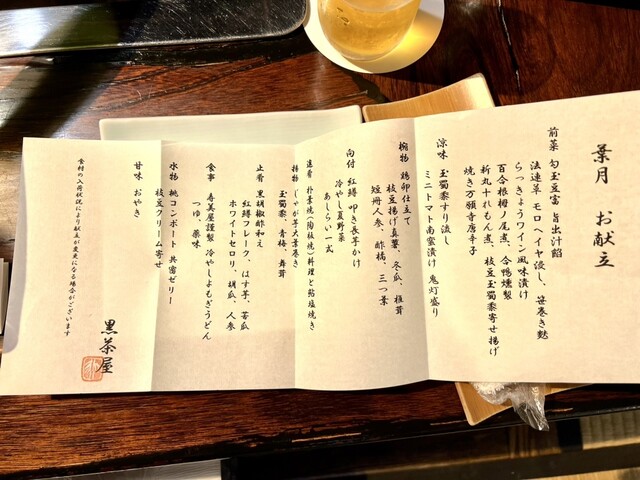 葉月　お献立
前菜　勾玉豆富　旨出汁餡
法連草　モロヘイヤ浸し、笹巻き麩
らっきょうワイン風味漬け
百合根栂ノ尾煮、合鴨燻製
新丸十れもん煮、枝豆玉蜀黍寄せ揚げ
焼き万願寺唐辛子
涼味　玉蜀黍すり流し
ミニトマト南蛮漬け　鬼灯盛り
椀物　鶏卵仕立て
枝豆揚げ真薯、冬瓜、椎茸
短冊人参、酢橘、三つ葉
向付　紅鱒　叩き長芋かけ
冷やし夏野菜
あしらい一式
進肴　朴葉焼(陶板焼)料理と鮎塩焼き
揚物　じゃが芋大葉巻き
玉蜀黍、青梅、舞茸
止肴　黒胡椒酢和え
紅鱒フレーク、はす芋、苦瓜
ホワイトセロリ、胡瓜、人参
食事　寿美屋謹製　冷やしよもぎうどん
つゆ、薬味
水物　桃コンポート　共蜜ゼリー
枝豆クリーム寄せ
甘味　おやき
食材の入荷状況により献立が変更になる場合がございます
黒茶屋